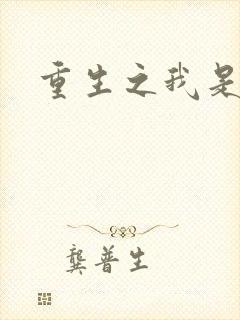 重生之我是
龔普生